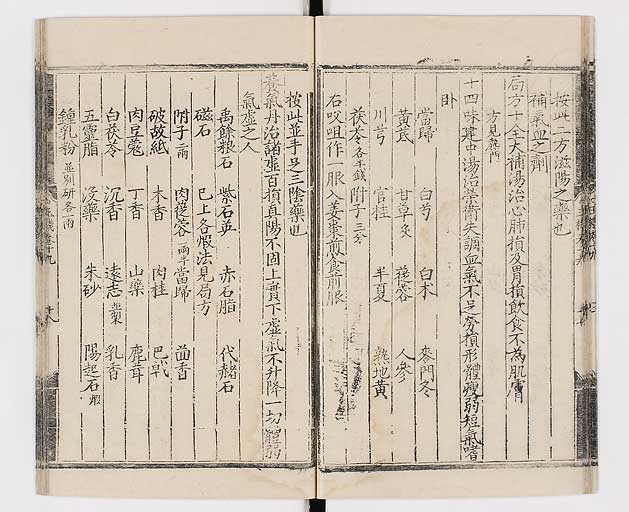 按此二方滋陽之藥也
補氣血之劑
局方十全大補湯治心肺損及胃損飲食不為肌膚
方見熱門
十四味建中湯治榮衛失調血氣不足勞損形體瘦弱短氣嗜
卧
當歸 白芍 白朮 麥門冬
黃芪 甘草炙 蓯蓉 人參
川芎 官桂 半夏 熟地黃
茯苓各 附子
右㕮咀作一服入姜棗煎食前服
按此並手足三陰藥也
養氣丹治諸虛百損真陽不固上實下虛氣不升降一切體弱
氣虛之人
禹餘粮石 紫石英 赤石脂 代赭石
磁石 已上各煅法見局方
附子二兩 肉蓯蓉一兩半 當歸 茴香
破故紙 木香 肉桂 巴戟
肉豆蔻 丁香 山藥 鹿茸
白茯苓 沉香 遠志 乳香
五靈脂 沒藥 朱砂 陽起石煅
鍾乳粉並別研各一兩